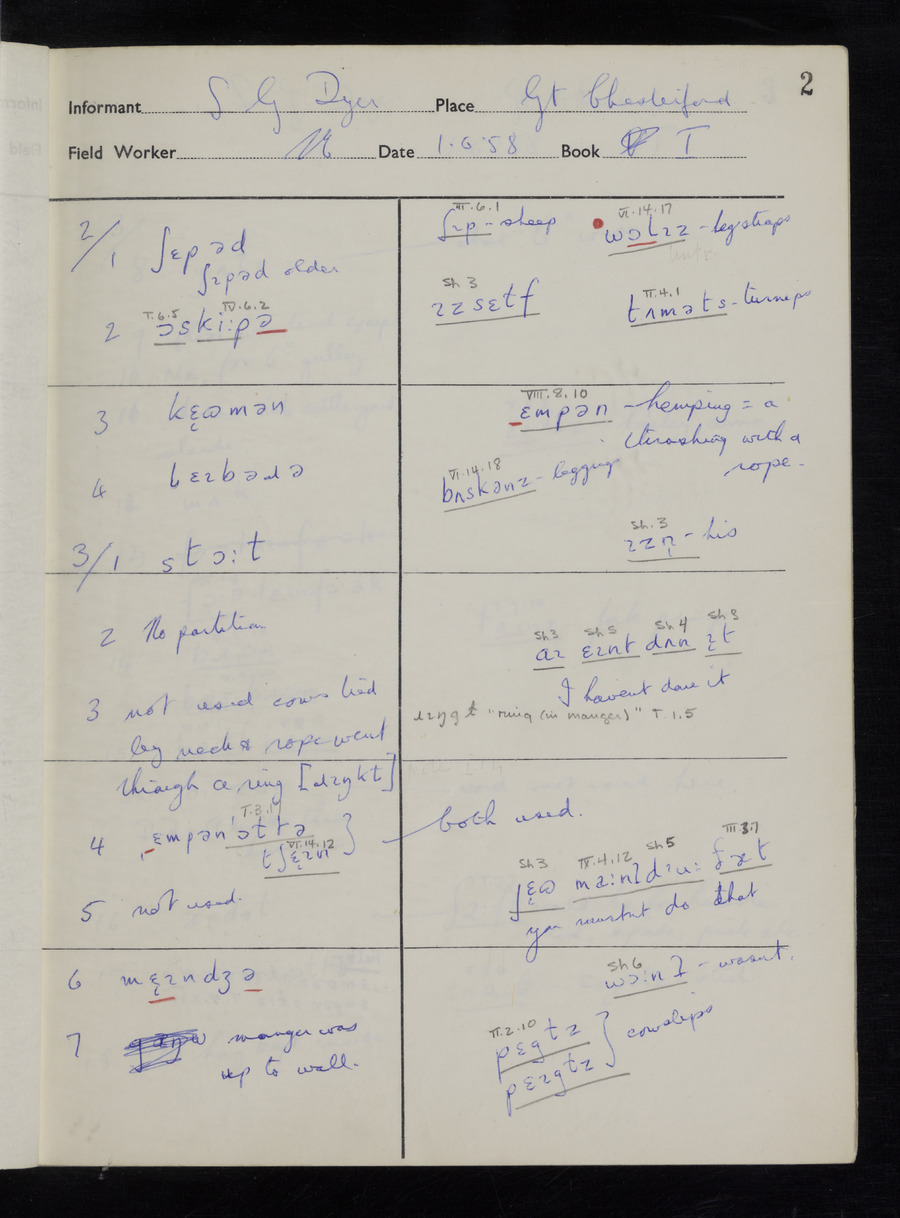 2
Informant S G Dyer Place Gt Chesterford
Field Worker Date 1.6.58 Book I
2/1 ʃɛpəd
ʃɪpəd older
T.6.5 IV.6.2
2 ɔski:pə
3 kɛ̞ɷmən
4
3/1 stɔ:t
2 No partition
3 not used cows tied
by neck & rope went
through a ring [ɹɪŋkt]
T.3.1
4 ɛmpən'ɔttə
VI.14.12
tʃɛ̞ɪn
5 not used.
6 mɛ̞ɪndʒə
7 manger was
up to wall.
III.6.1
ʃɪp - sheep
VI.14.17
wɔlɪz - legstraps
Sh 3
ɪzsɛtf
II.4.1
tʌməts - turnips
VIII.8.10
ɛmpən - hemping = a
thrashing with a
rope.
VI.14.18
bʌskənz - leggings
Sh.3
ɪzn̩ - his
Sh3 Sh5 Sh4 Sh8
aɪ ɛɪnt dʌn ɪt
I havent done it
ɹɪŋgt "ring (in manger)" T.1.5
both used.
Sh3 IV.4.12 Sh5 III.3.7
you mustnt do that
Sh6
wɔ:nʔ - wasnt.
II.2.10
pɛgtz
pɛɪgtz
cowslips